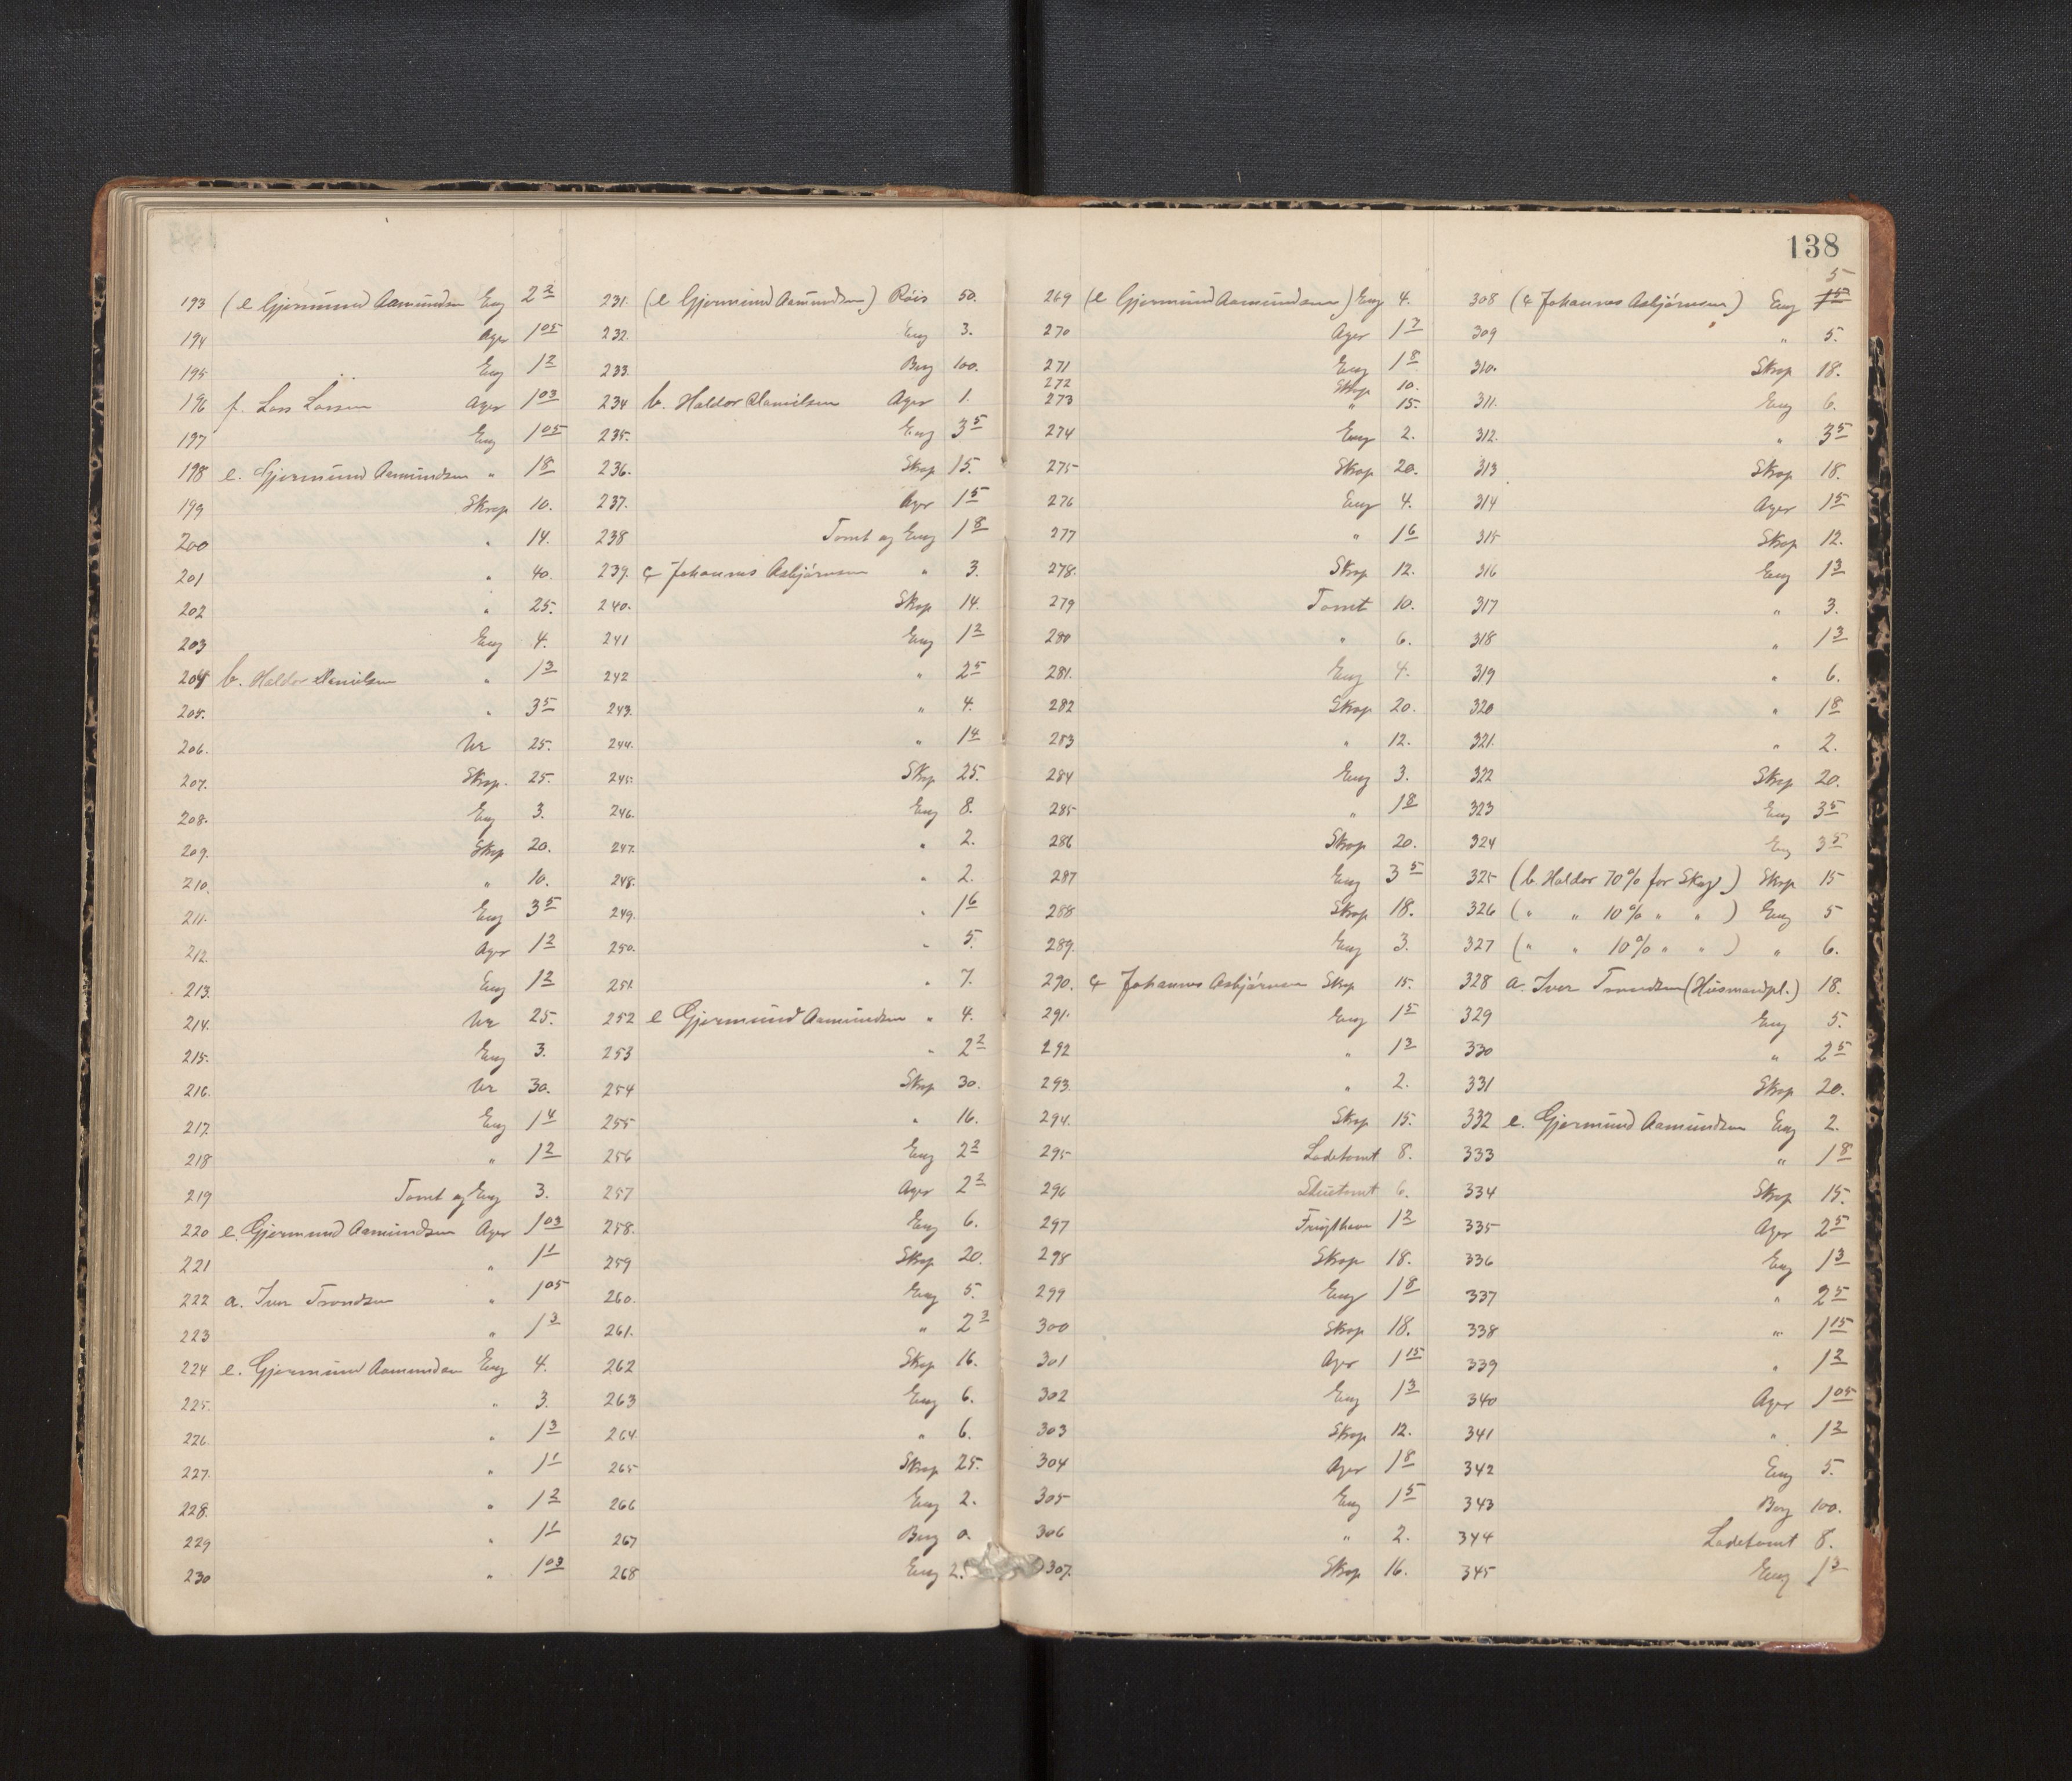 138
193 (e Gjermund Aamundsen Eng 2 2
194 Ager 1 05
195 Eng 1 2
196 f. Lars Larsen Ager 1 03
197 Eng 1 05
198 e. Gjermund Aamundsen " 1 8
199 Skrap 10.
200 " 14.
201 " 40.
202 " 25.
203 Eng 4.
204 b. Haldor Danielsen " 1 3
205. " 3 5
206. Ur 25.
207. Skrap. 25.
208. Eng 3.
209. Skrap 20.
210. " 10.
211. Eng 3 5
212. Ager 1 2
213. Eng 1 2
214. Ur 25.
215. Eng 3.
216. Ur 30.
217. Eng 1 4
218 " 1 2
219 Tomt og Eng 3.
220 e. Gjermund Aamundsen Ager 1 03
221 " 1 1
222 a. Iver Trondsen " 1 05
223 " 1 3
224 e. Gjermund Aamundsen Eng 4.
225. " 3.
226. " 1 3
227. " 1 1
228. " 1 2
229 " 1 1
230 " 1 03
231. (e Gjermund Aamundsen) Røis 50.
232. Eng 3.
233. Berg 100.
234 b. Haldor Danielsen Ager 1.
235. Eng 3 5
236. Skrap 15.
237. Ager 1 5
238 Tomt og Eng 1 8
239. c Johannes Asbjörnsen " 3.
240. Skrap 14.
241 Eng 1 2
242 " 2 5
243. " 4.
244. " 1 4
245. Skrap 25.
246. Eng 8.
247. " 2.
248. " 2.
249. " 1 6
250. " 5.
251. " 7.
252 e Gjermund Aamundsen " 4.
253 " 2 2
254 Skrap 30.
255 " 16.
256 Eng 2 2
257 Ager 2 2
258. Eng 6.
259 Skrap 20.
260. Eng 5.
261. " 2 3
262 Skrap 16.
263 Eng 6.
264. " 6.
265 Skrap 25.
266 Eng 2.
267 Berg 0.
268 Eng 2.
269 (e Gjermund Aamundsen) Eng 4.
270 Ager 1 3
271 Eng 1 8
272 Skrap 10.
273 " 15.
274 Eng 2.
275 Skrap 20.
276 Eng 4.
277 " 1 6
278. Skrap 12.
279 Tomt 10.
280 " 6.
281. Eng 4.
282 Skrap 20.
283 " 12.
284 Eng 3.
285 " 1 8
286 Skrap 20.
287 Eng 3 5
288 Skrap 18.
289. Eng 3.
290. c Johannes Asbjörnsen Skrap 15.
291. Eng 1 5
292 " 1 3
293. " 2.
294. Skrap 15.
295 Ladetomt 8.
296 6.
297 Frugthave 1 2
298 Skrap 18.
299 Eng 1 8
300 Skrap 18.
301 Ager 1 15
302 Eng 1 3
303 Skrap 12.
304 Ager 1 8
305 Eng 1 5
306 " 2.
307. Skrap 16.
308 (c Johannes Asbjörnsen) Eng 5
309 " 5.
310. Skrap 18.
311. Eng 6.
312. " 3 5
313 Skrap 18.
314 Ager 1 5
315 Skrap 12.
316 Eng 1 3
317 " 3.
318 " 1 3
319 " 6.
320 " 1 8
321. " 2.
322 Skrap 20.
323 Eng 3 5
324 Eng 3 5
325 (b. Haldor 70% for Skog) Skrap 15
326 (" " 10% " " ) Eng 5
327 (" " 10% " " ) " 6.
328 a. Iver Trondsen (Husmandpl.) 18.
329 Eng 5.
330 " 2 5
331 Skrap 20.
332 e. Gjermund Aamundsen Eng 2.
333 " 1 8
334 Skrap 15.
335 Ager 2 5
336 Eng 1 3
337 " 2 5
338 " 1 15
339 " 1 2
340 Ager 1 05
341 " 1 2
342 Eng 5.
343 Berg 100.
344 Ladetomt 8.
345 Eng 1 3